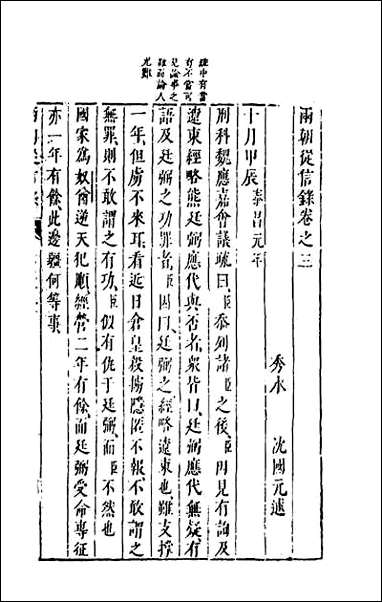 兩朝從信錄卷之三
秀水　沈國元述
十月甲辰泰昌元年
刑科魏應嘉會議疏曰臣忝列諸臣之後臣因見有詢及
遼東經略熊廷弼應代與否者衆皆曰廷弼應代無疑有
語及廷弼之功罪者臣因曰廷弼之經略遼東也雖支撐
一年但虜不來耳看近日倉皇殺擄隱匿不報不敢謂之
無罪則不敢謂之有功臣似有仇于廷弼而臣不然也
國家爲奴酋逆天犯順經營二年有餘而廷弼受命專征
亦一年有餘此邊疆何等事
有不言可
見論事之
難而論人
尤難